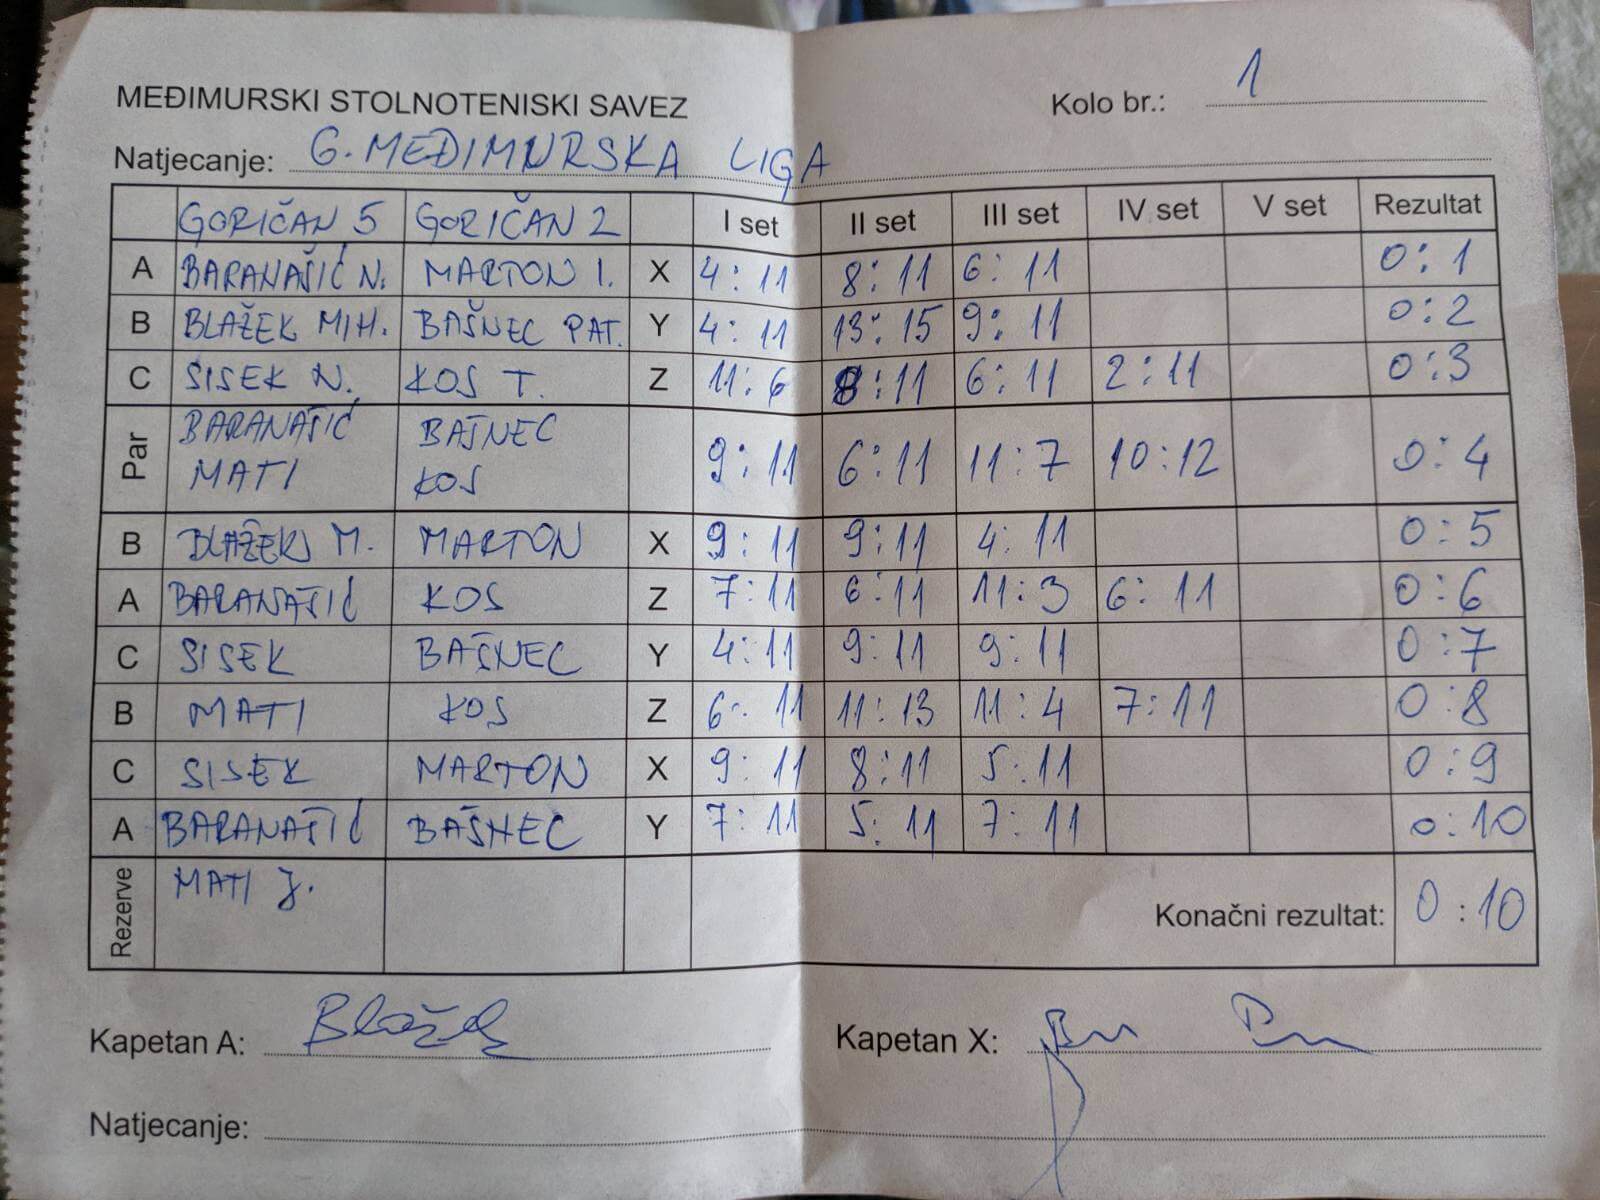 MEĐIMURSKI STOLNOTENISKI SAVEZ
Kolo br.: 1
Natjecanje: G. MEĐIMURSKA LIGA
GORIČAN 5 GORIČAN 2 I set II set III set IV set V set Rezultat
A BARANAŠIĆ N. MARTON I. X 4:11 8:11 6:11 0:1
B BLAŽEK MIH. BAŠNEC PAT. Y 4:11 13:15 9:11 0:2
C SISEK N. KOS T. Z 11:6 8:11 6:11 2:11 0:3
Par BARANAŠIĆ MATI BAŠNEC KOS 9:11 6:11 11:7 10:12 0:4
B BLAŽEK M. MARTON X 9:11 9:11 4:11 0:5
A BARANAŠIĆ KOS Z 7:11 6:11 11:3 6:11 0:6
C SISEK BAŠNEC Y 4:11 9:11 9:11 0:7
B MATI KOS Z 6:11 11:13 11:4 7:11 0:8
C SISEK MARTON X 9:11 8:11 5:11 0:9
A BARANAŠIĆ BAŠNEC Y 7:11 5:11 7:11 0:10
Rezerve MATI J. Konačni rezultat: 0:10
Kapetan A: Blažek Kapetan X:
Natjecanje: